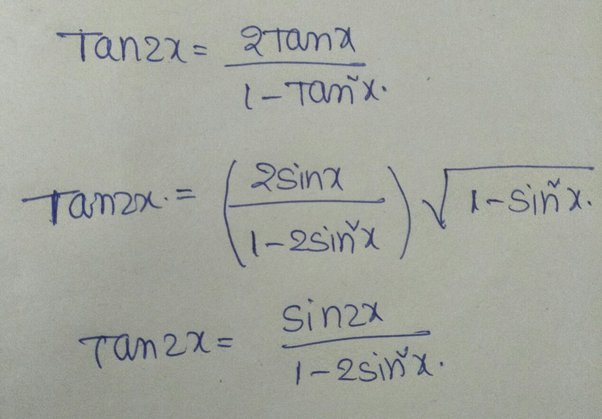 Tan2x = 2Tanx / 1 - Tan²x.
Tan2x. = (2sinx / 1 - 2sin²x) √1 - sin²x.
Tan2x = sin2x / 1 - 2sin²x.